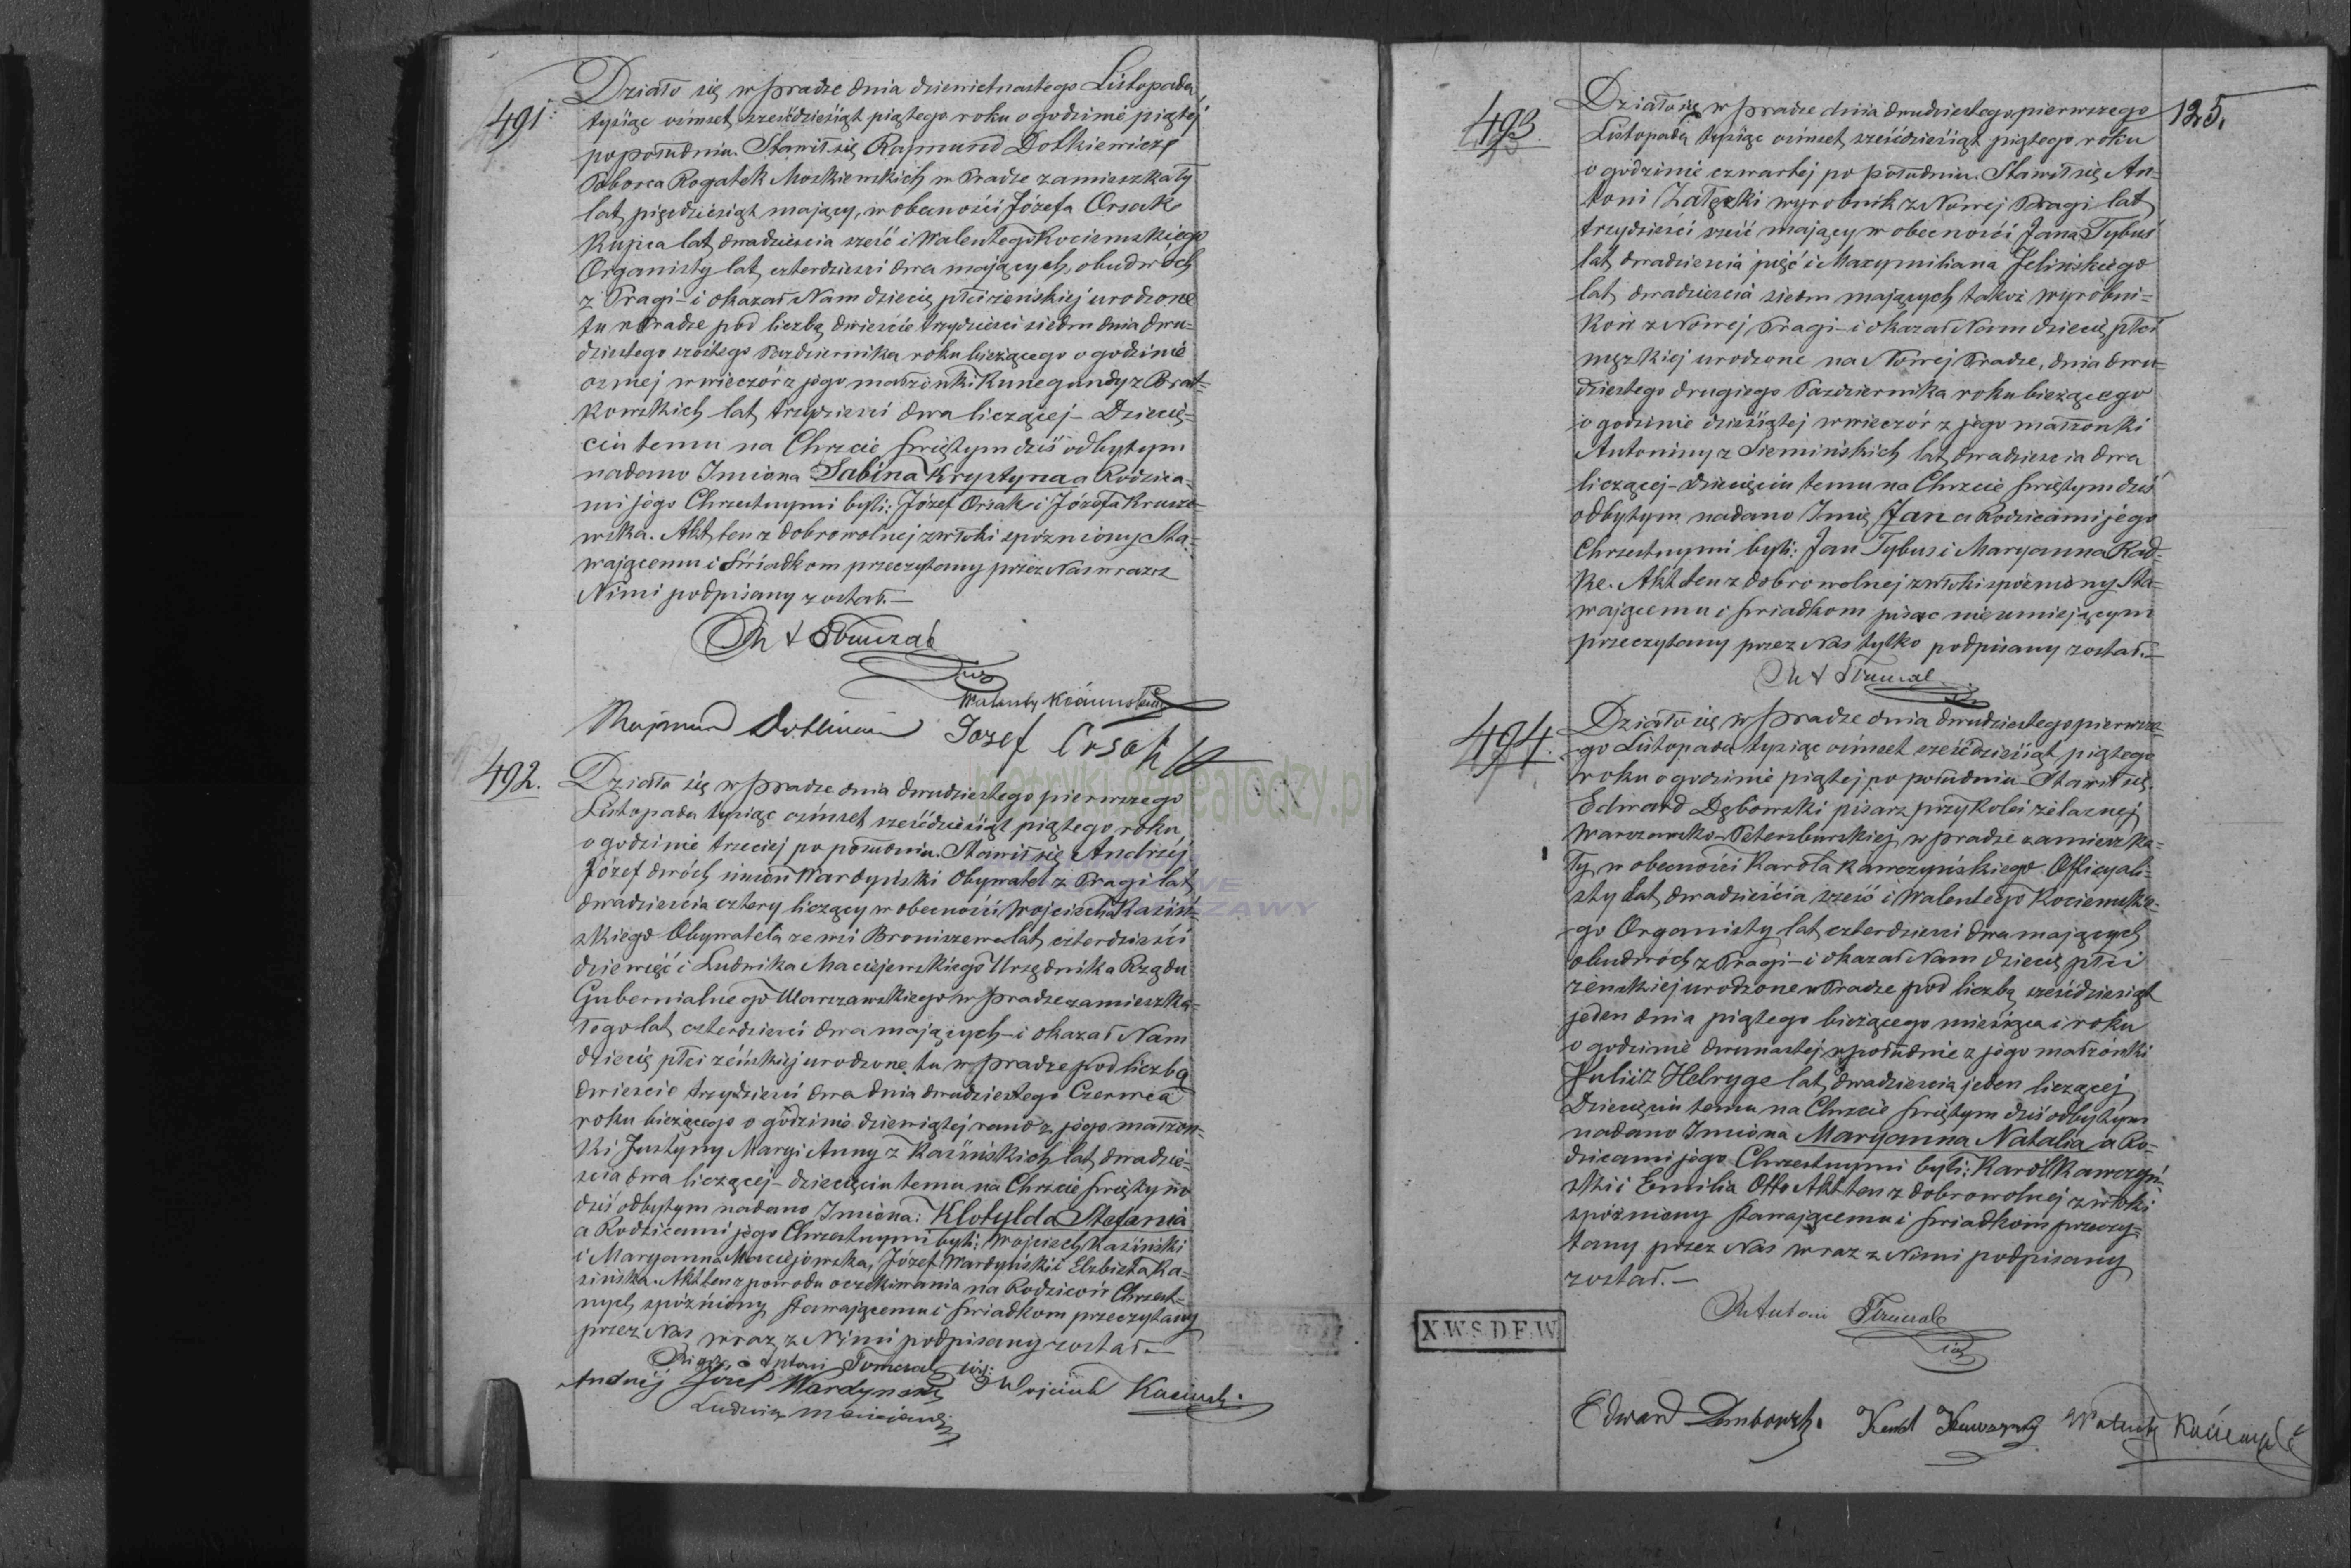 491.
Działo się w Pradze dnia dziewietnastego Listopada
tysiąc ośmset sześćdziesiąt piątego roku o godzinie piątej
po południu. Stawił się Rajmund Dotkiewicz
Poborca Rogatek Moskiewskich w Pradze zamieszkały
lat pięćdziesiąt mający, w obecności Józefa Orsak
Kupca lat dwadzieścia sześć i Walentego Kociemskiego
Organisty lat czterdzieści dwa mających, obudwóch
z Pragi – i okazał Nam dziecię płci żeńskiej urodzone
tu w Pradze pod liczbą dwieście trzydzieści siedm dnia dwu=
dziestego szóstego Października roku bieżącego o godzinie
osmej w wieczór z jego małżonki Kunegundy z Brat=
kowskich lat trzydzieści dwa liczącej – Dziecię=
ciu temu na Chrzcie Świętym dziś odbytym
nadano Imiona Sabina Krystyna a Rodzica=
mi jego Chrzestnymi byli: Józef Orsak i Józefa Kruszewska
wska. Akt ten z dobrowolnej zwłoki spóźniony Sta=
wającemu i Świadkom przeczytany przez Nas wraz z
Nimi podpisany został.—
Walenty Kociemski
Rajmund Dotkiewicz Józef Orsak
492.
Działo się w Pradze dnia dwudziestego pierwszego
Listopada tysiąc ośmset sześćdziesiąt piątego roku
o godzinie trzeciej po południu. Stawił się Andrzéj
Józef dwóch imion Wardyński Obywatel z Pragi lat
dwadzieścia cztery liczący w obecności Wojciecha Kasiń=
skiego Obywatela ze wsi Broniszewa lat czterdzieści
dziewięć i Ludwika Maciejewskiego Urzędnika Rządu
Gubernialnego Warszawskiego w Pradze zamieszka=
łego lat czterdzieści dwa mających – i okazał Nam
dziecię płci żeńskiej urodzone tu w Pradze pod liczbą
dwieście trzydzieści dwa dnia dwudziestego Czerwca
roku bieżącego o godzinie dziewiątej rano z jego małżon=
ki Justyny Maryi Anny z Kasińskich lat dwadzie=
ścia dwa liczącej – dziecięciu temu na Chrzcie Świętym
dziś odbytym nadano Imiona: Klotylda Stefania
a Rodzicami jego Chrzestnymi byli: Wojciech Kasiński
i Maryanna Maciejewska, Józef Wardyński i Elżbieta Ka=
sińska. Akt ten z powodu oczekiwania na Rodziców Chrzest=
nych spóźniony, stawającemu i świadkom przeczytany
przez Nas wraz z Nimi podpisany został.—
Andrzéj Józef Wardyński Wojciech Kasiński
Ludwik Maciejewski
125.
493.
Działo się w Pradze dnia dwudziestego pierwszego
Listopada tysiąc ośmset sześćdziesiąt piątego roku
o godzinie czwartej po południu. Stawił się An=
toni Załęski wyrobnik z Nowej Pragi lat
trzydzieści sześć mający w obecności Jana Tybuś
lat dwadzieścia pięć i Maxymiliana Jelińskiego
lat dwadzieścia siedm mających takoż wyrobni=
ków z Nowej Pragi – i okazał Nam dziecię płci
męzkiej urodzone na Nowej Pradze, dnia dwu=
dziestego drugiego Października roku bieżącego
o godzinie dziesiątej w wieczór z jego małżonki
Antoniny z Siemińskich lat dwadzieścia dwa
liczącej – Dziecięciu temu na Chrzcie Świętym dziś
odbytym nadano Imię Jan a Rodzicami jego
Chrzestnymi byli: Jan Tybus i Maryanna Rad=
ke. Akt ten z dobrowolnej zwłoki spóźniony Sta=
wającemu i świadkom pisać nieumiejącym
przeczytany przez Nas tylko podpisany został.—
494.
Działo się w Pradze dnia dwudziestego pierwsze=
go Listopada tysiąc ośmset sześćdziesiąt piątego
roku o godzinie piątej po południu. Stawił się
Edward Dębowski pisarz przy kolei żelaznej
Warszawsko-Petersburskiej w Pradze zamieszka=
ły w obecności Karola Kawczyńskiego Officyali=
sty lat dwadzieścia sześć i Walentego Kociemskie=
go Organisty lat czterdzieści dwa mających
obudwóch z Pragi – i okazał Nam dziecię płci
żenskiej urodzone w Pradze pod liczbą sześćdziesiąt
jeden dnia piątego bieżącego miesiąca i roku
o godzinie dwunastej w południe z jego małżonki
Julii z Helryge lat dwadzieścia jeden liczącej
Dziecięciu temu na Chrzcie Świętym dziś odbytym
nadano Imiona Maryanna Natalia a Ro=
dzicami jego Chrzestnymi byli: Karól Kawczyń=
ski i Emilia Otto Akt ten z dobrowolnej zwłoki
spóźniony stawającemu i świadkom przeczy=
tany przez Nas wraz z Nimi podpisany
został.—
X.W.S.D.F.W.
Edward Dembowski. Karol Kawczyński Walenty Kociemski
metryki.genealodzy.pl